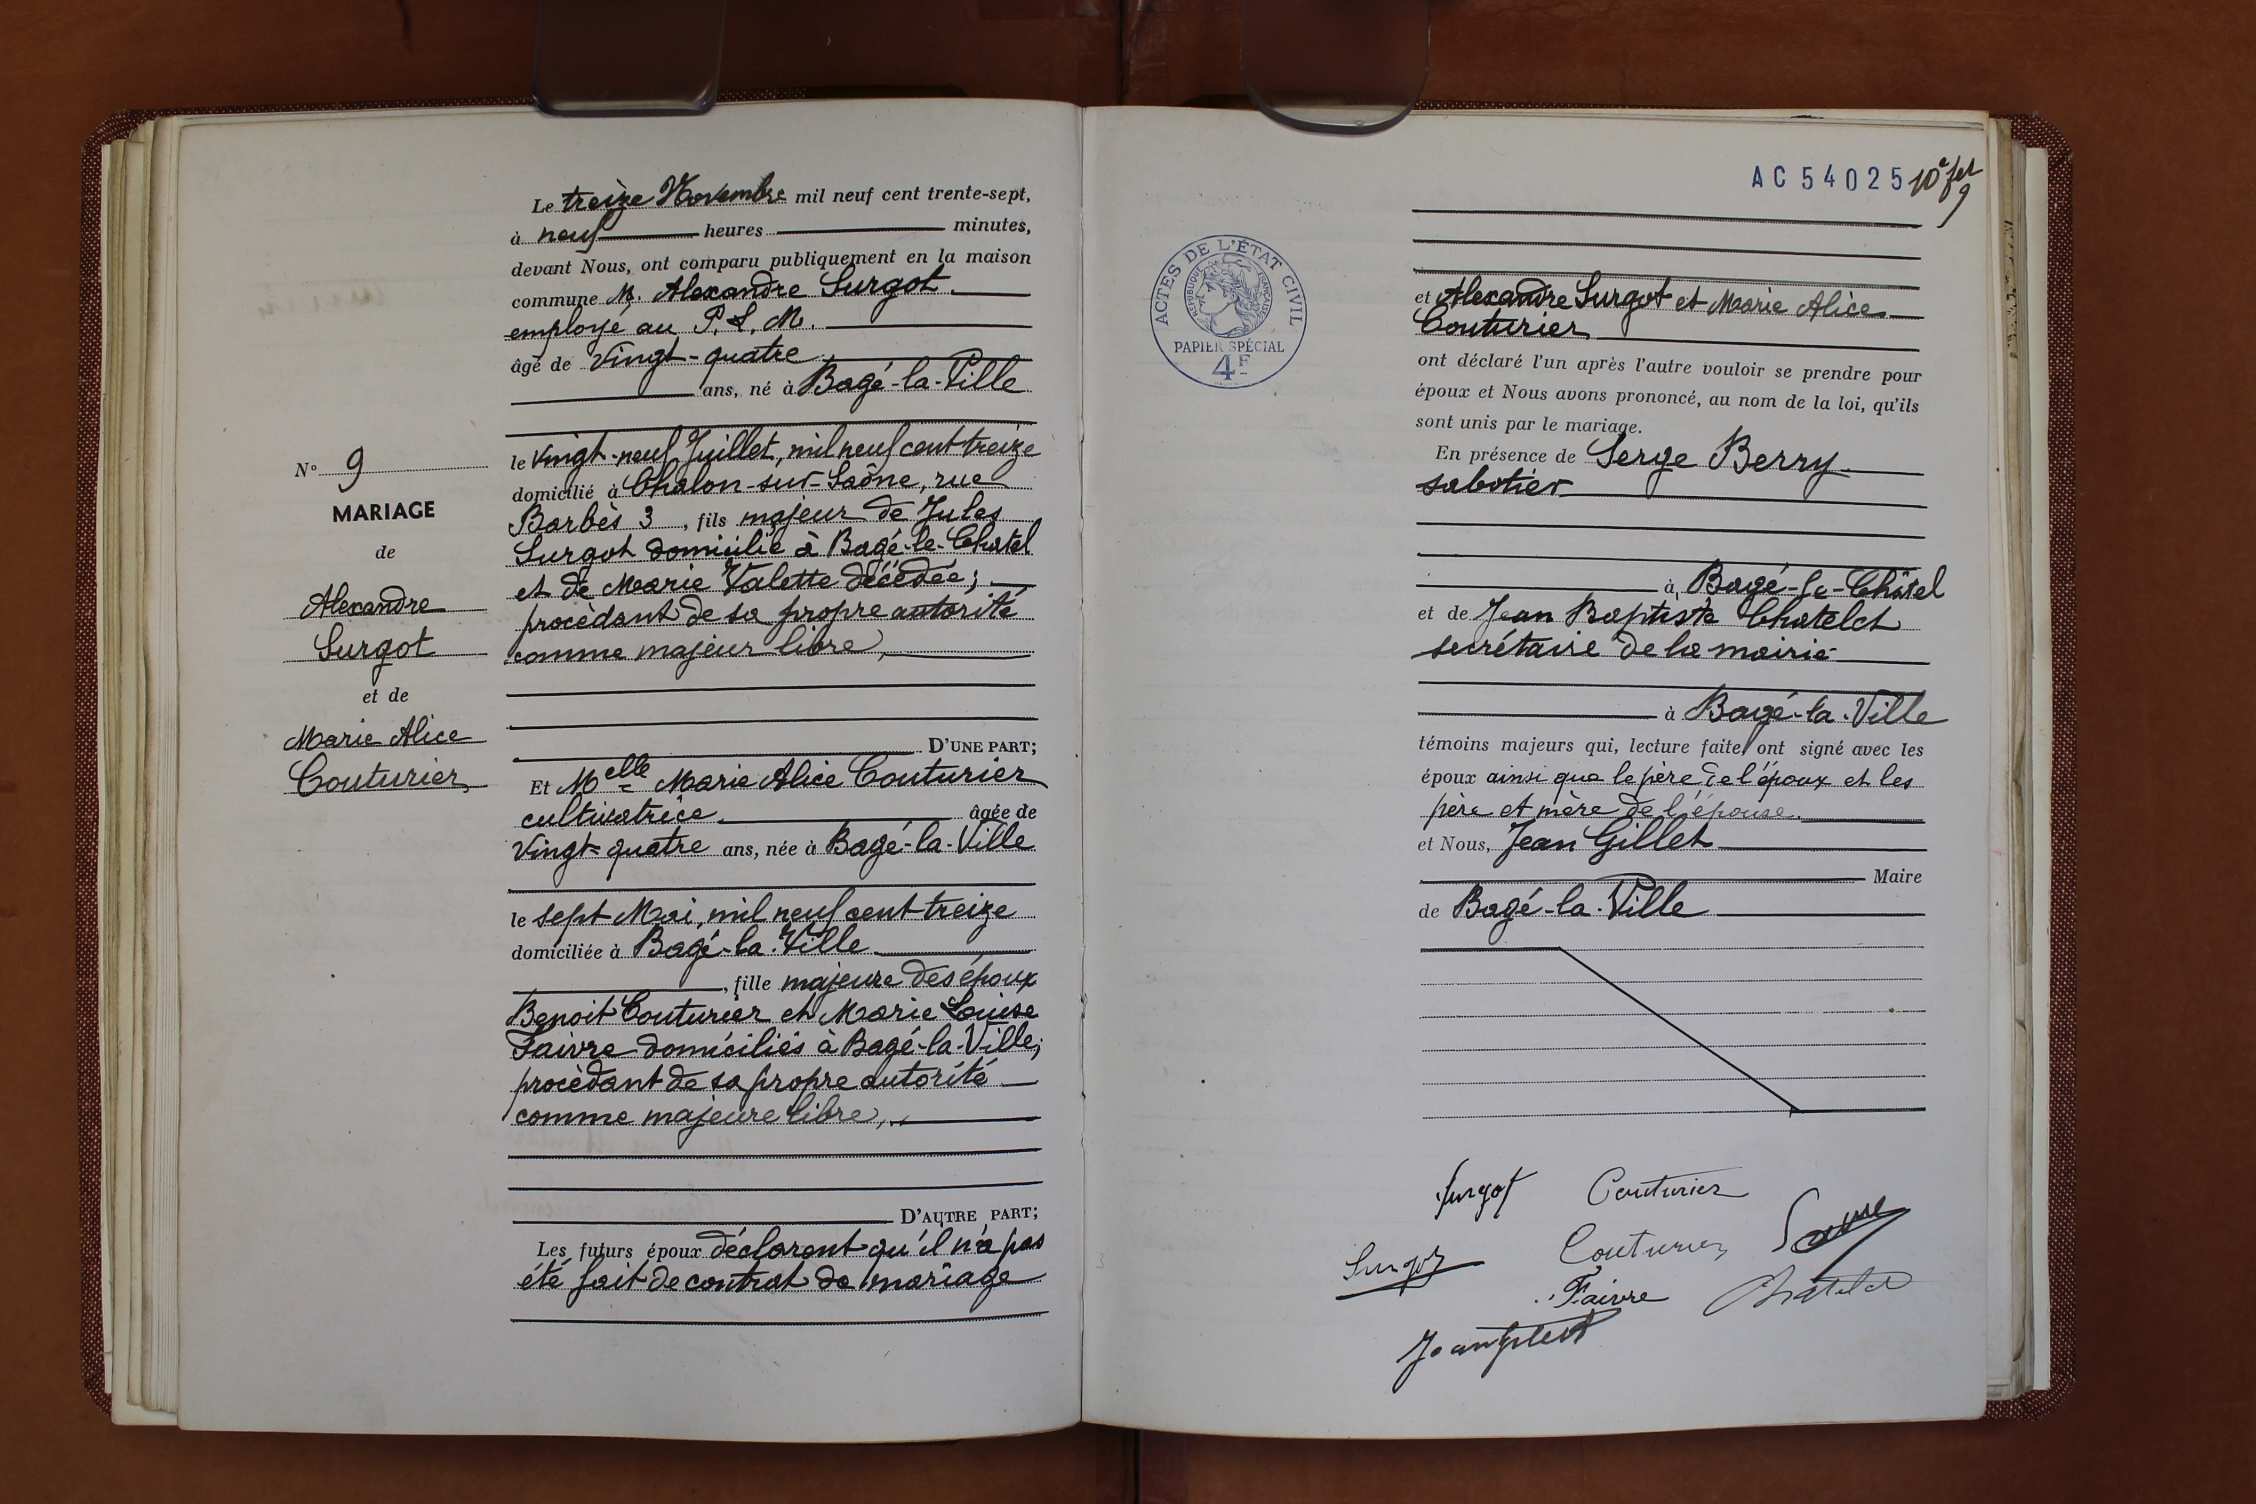 N° 9
MARIAGE
de
Alexandre
Surgot
et de
Marie Alice
Couturier
Le treize Novembre mil neuf cent trente-sept,
à neuf heures minutes,
devant Nous, ont comparu publiquement en la maison
commune M. Alexandre Surgot
employé au P. L. M.
âgé de vingt-quatre
ans, né à Bagé-la-Ville
le vingt-neuf Juillet, mil neuf cent treize
domicilié à Chalon-sur-Saône, rue
Barbès 3, fils majeur de Jules
Surgot domicilié à Bagé-le-Chatel
et de Marie Valette décédée;
procédant de sa propre autorité
comme majeur libre,
D'UNE PART;
Et Melle Marie Alice Couturier
cultivatrice âgée de
vingt-quatre ans, née à Bagé-la-Ville
le sept Mai, mil neuf cent treize
domiciliée à Bagé-la-Ville
, fille majeure des époux
Benoit Couturier et Marie Louise
Faivre domiciliés à Bagé-la-Ville;
procédant de sa propre autorité
comme majeure libre,
D'AUTRE PART;
Les futurs époux déclarent qu'il n'a pas
été fait de contrat de mariage
AC 54025 10e fet
9
ACTES DE L'ÉTAT CIVIL
RÉPUBLIQUE FRANÇAISE
PAPIER SPÉCIAL
4F
et Alexandre Surgot et Marie Alice
Couturier
ont déclaré l'un après l'autre vouloir se prendre pour
époux et Nous avons prononcé, au nom de la loi, qu'ils
sont unis par le mariage.
En présence de Serge Berry
sabotier
à Bagé-le-Châtel
et de Jean Baptiste Chatelet
secrétaire de la mairie
à Bagé-la-Ville
témoins majeurs qui, lecture faite, ont signé avec les
époux ainsi que le père de l'époux et les
père et mère de l'épouse.
et Nous, Jean Gillet
Maire
de Bagé-la-Ville
Surgot Couturier
Surgot Couturier
Faivre Chatelet
Jean Gillet